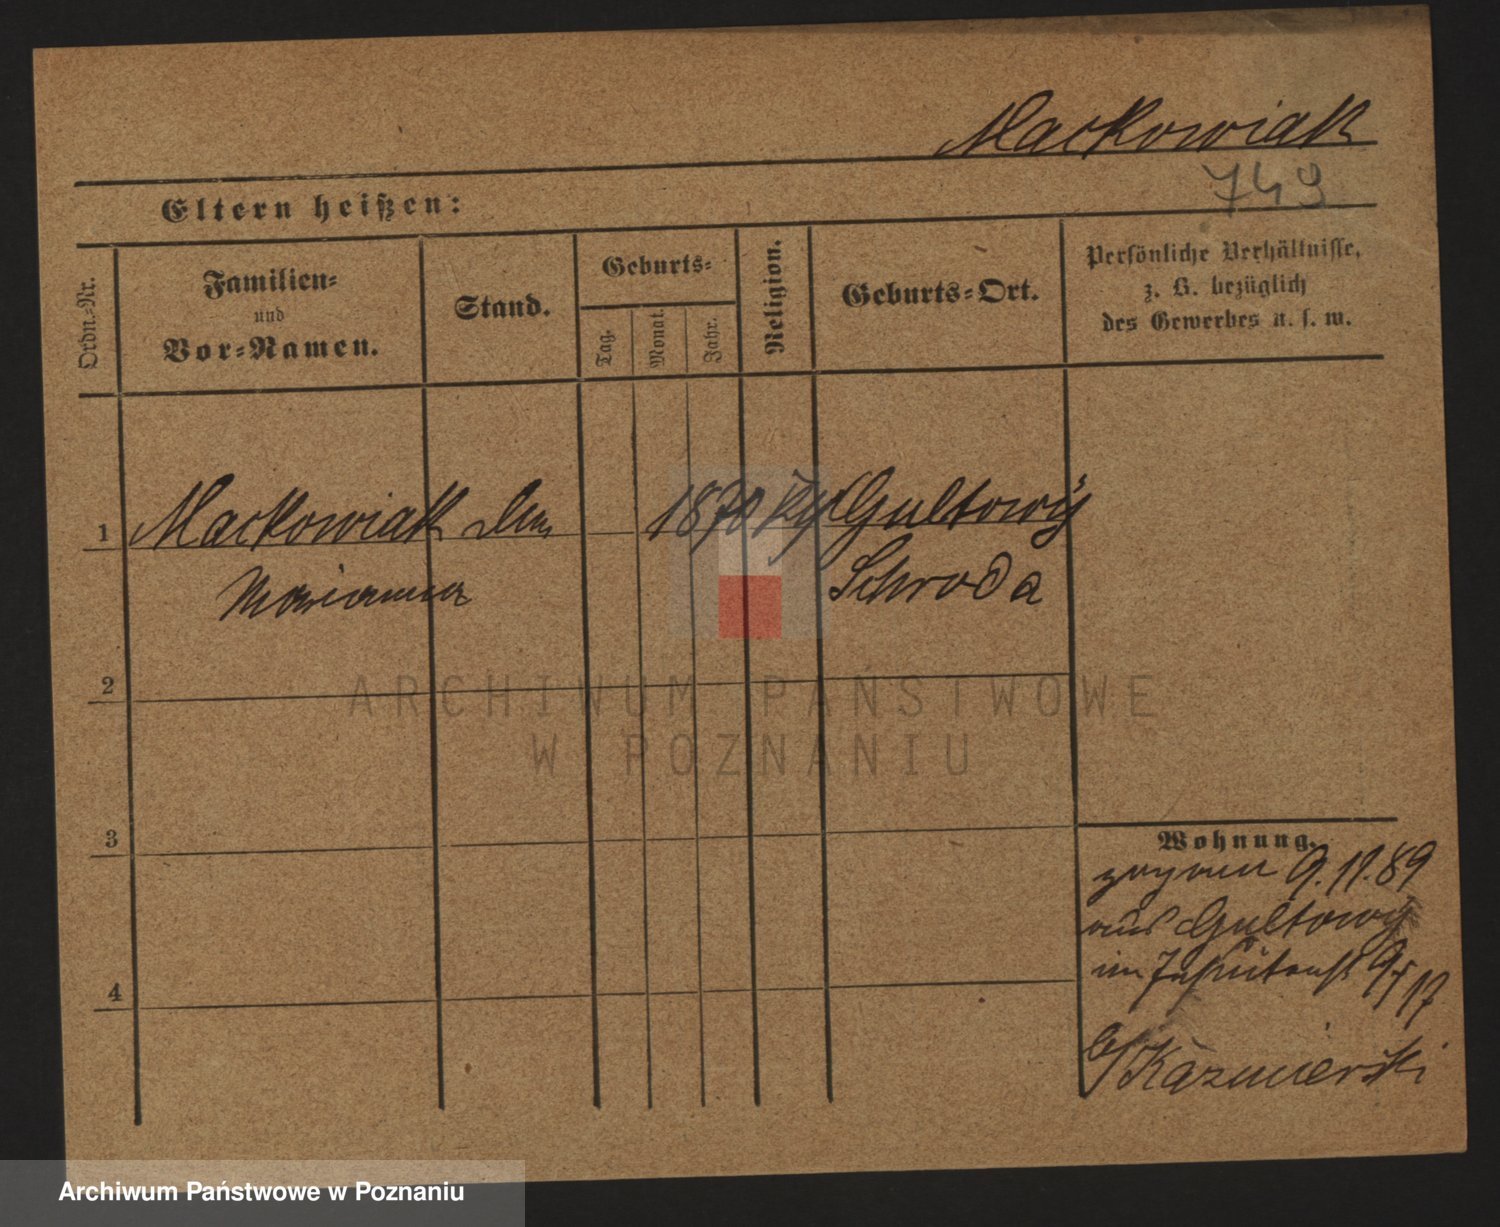 Mackowiak
749
Eltern heißen:
Ordn.-Nr.
Familien-
und
Vor-Namen.
Stand.
Geburts-
Tag.
Monat.
Jahr.
Religion.
Geburts-Ort.
Persönliche Verhältnisse,
z. B. bezüglich
des Gewerbes u. s. w.
1 Mackowiak 1870 Gultowy
Marianna Schroda
2
3
4
Wohnung.
zugezogen 9.11.89
aus Gultowy
im
b/ Kazmierski
ARCHIWUM PAŃSTWOWE
W POZNANIU
Archiwum Państwowe w Poznaniu